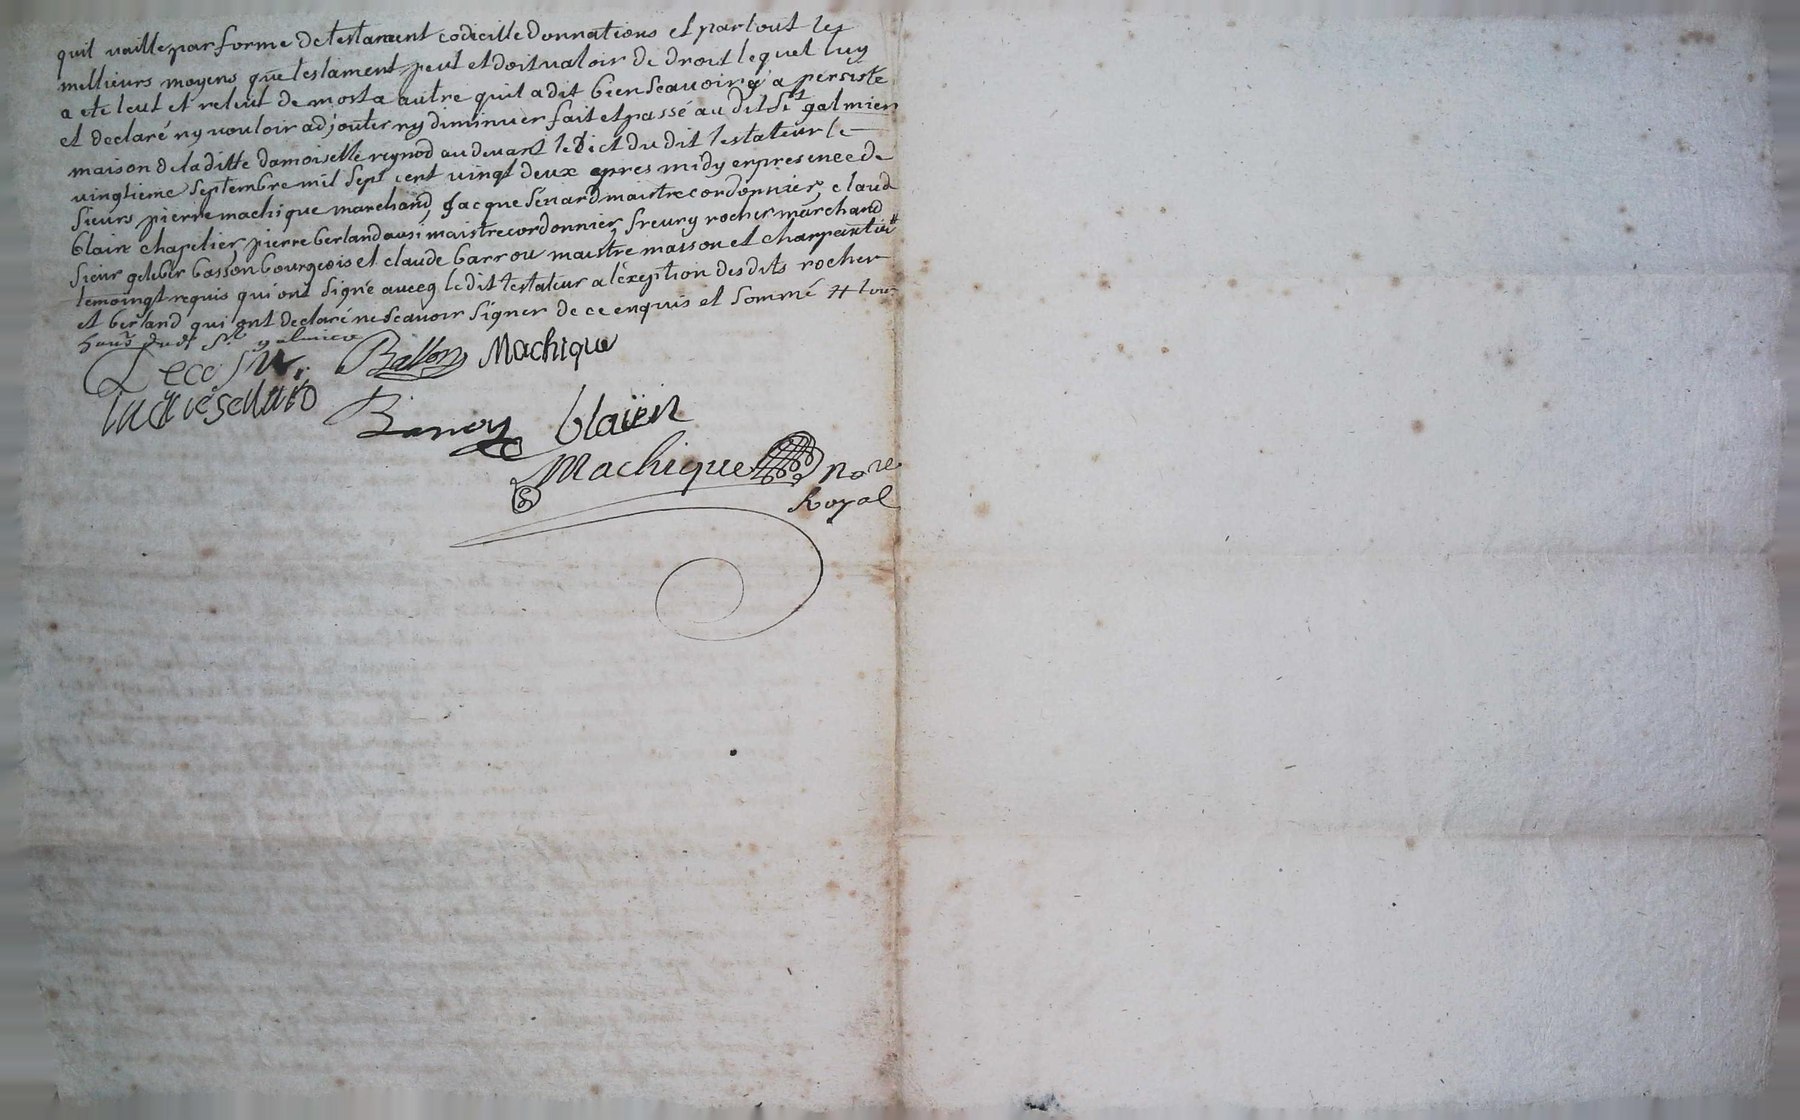 quil vaille par forme de testament codicille donnations et par tout les
meillieurs moyens que testament peut et doit valoir de droit lequel luy
a ete leut et releut de mot a autre quil a dit bien scavoir y a persisté
et declaré ny vouloir adjouter ny diminuer fait et passé au dit St galmier
maison de la ditte damoiselle reynod au devant le lict du dit testateur le
vingtieme septembre mil sept cent vingt deux apres midy en presence de
sieurs pierre machique marchand, Jacque senard maistre cordonnier, claud
blain chapelier pierre berland aussi maistre cordonnier, fleury rocher marchand
sieur basson bourgeois et claude barrou maistre masson et charpentier #
temoingt requis qui ont signé avecq le dit testateur a l'exeption des dits rocher
et berland qui ont declaré ne scavoir signer de ce enquis et sommé # tous
St galmier
Basson Machique
blaien
Machique nore
Royal